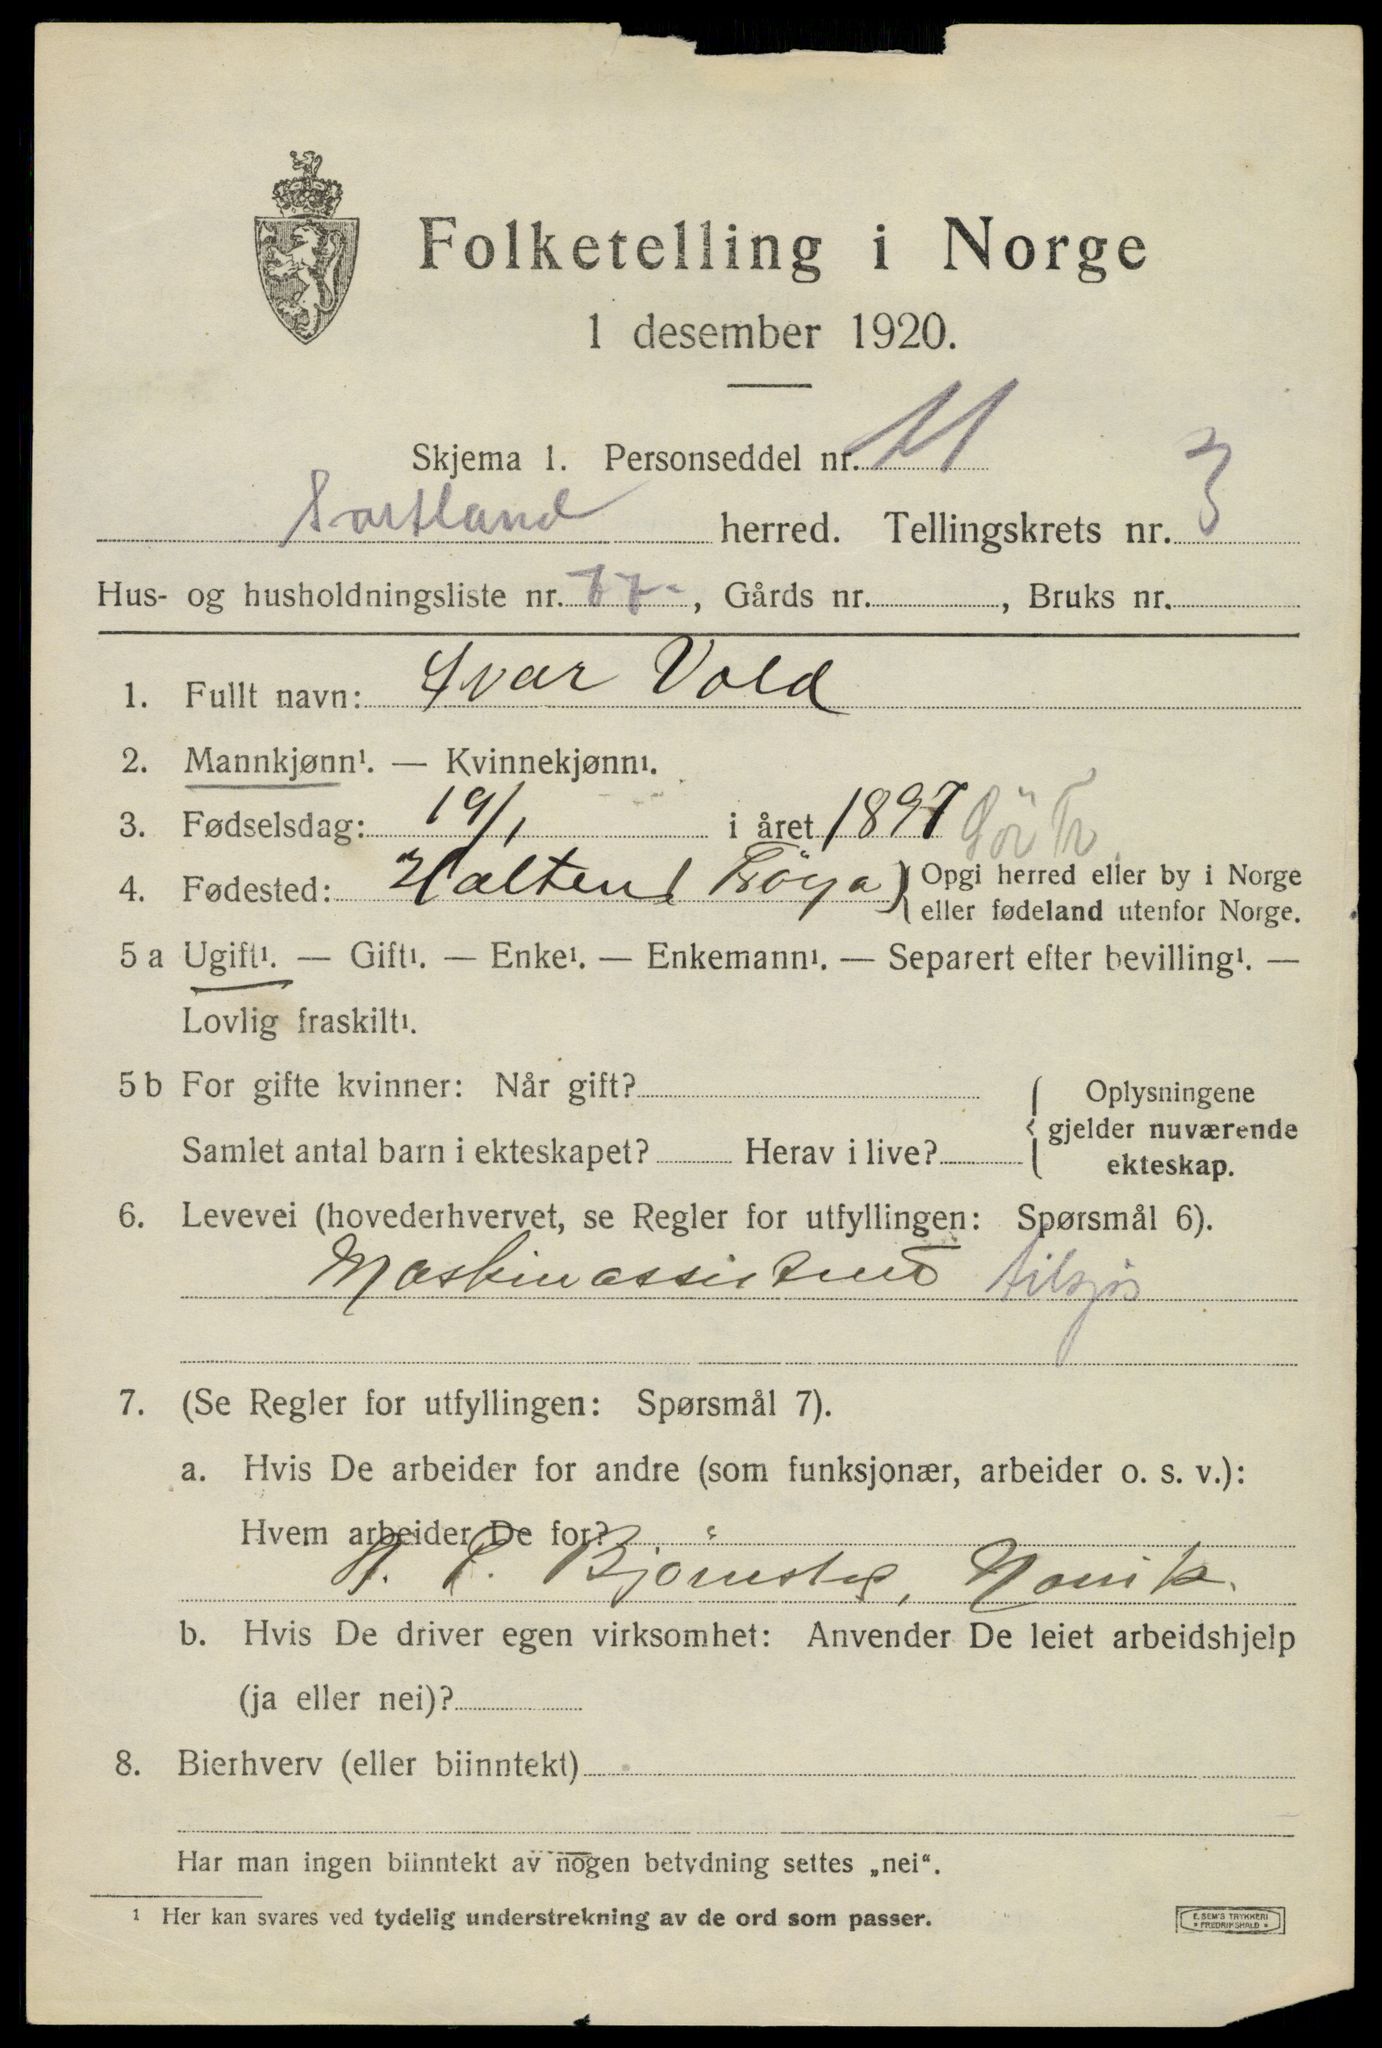 Folketelling i Norge
1 desember 1920.
Skjema 1. Personseddel nr. 11
Sortland herred. Tellingskrets nr. 3
Hus- og husholdningsliste nr. 17-, Gårds nr. , Bruks nr.
1. Fullt navn: Ivar Vold
2. Mannkjønn¹. — Kvinnekjønn¹.
3. Fødselsdag: 19/1 i året 1897 Sör Tr.
4. Fødested: Halten (Fröya) Opgi herred eller by i Norge
eller fødeland utenfor Norge.
5 a Ugift¹. — Gift¹. — Enke¹. — Enkemann¹. — Separert efter bevilling¹. —
Lovlig fraskilt¹.
5 b For gifte kvinner: Når gift?
Samlet antal barn i ekteskapet? Herav i live?
Oplysningene
gjelder nuværende
ekteskap.
6. Levevei (hovederhvervet, se Regler for utfyllingen: Spørsmål 6).
Maskinassistent tilsjös
7. (Se Regler for utfyllingen: Spørsmål 7).
a. Hvis De arbeider for andre (som funksjonær, arbeider o. s. v.):
Hvem arbeider De for?
P. Narvik.
b. Hvis De driver egen virksomhet: Anvender De leiet arbeidshjelp
(ja eller nei)?
8. Bierhverv (eller biinntekt)
Har man ingen biinntekt av nogen betydning settes „nei“.
¹ Her kan svares ved tydelig understrekning av de ord som passer.
E. SEM'S TRYKKERI
* FREDRIKSHALD *